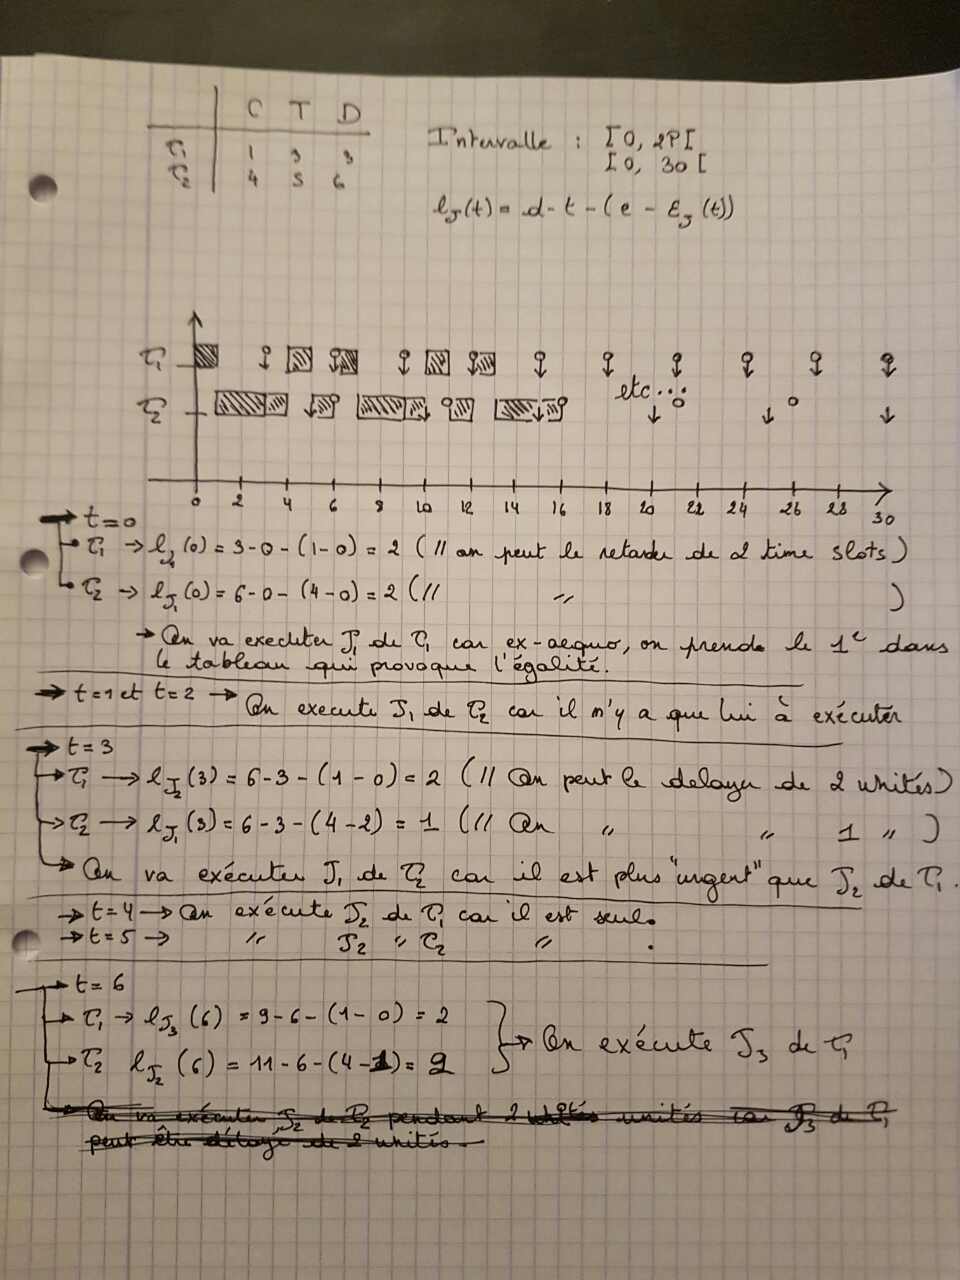 C T D
τ1 1 3 3
τ2 4 5 6
Intervalle : [0, 2P[
[0, 30[
lJ(t) = d - t - (e - EJ(t))
τ1
τ2
etc...
0 2 4 6 8 10 12 14 16 18 20 22 24 26 28 30
→ t=0
τ1 → lJ1(0) = 3-0-(1-0) = 2 (// on peut le retarder de 2 time slots)
τ2 → lJ1(0) = 6-0-(4-0) = 2 (// " )
→ On va executer J1 de τ1 car ex-aequo, on prends le 1er dans
le tableau qui provoque l'égalité.
→ t=1 et t=2 → On execute J1 de τ2 car il n'y a que lui à exécuter
→ t=3
τ1 → lJ2(3) = 6-3-(1-0) = 2 (// On peut le delayer de 2 unités)
τ2 → lJ1(3) = 6-3-(4-2) = 1 (// On " " 1 " )
→ On va exécuter J1 de τ2 car il est plus "urgent" que J2 de τ1.
→ t=4 → On exécute J2 de τ1 car il est seul.
→ t=5 → " J2 " τ2 " .
→ t=6
τ1 → lJ3(6) = 9-6-(1-0) = 2
τ2 lJ2(6) = 11-6-(4-1) = 2
→ On exécute J3 de τ1
On va exécuter J2 de τ2 pendant 2 unités car J3 de τ1
peut être délayé de 2 unités.